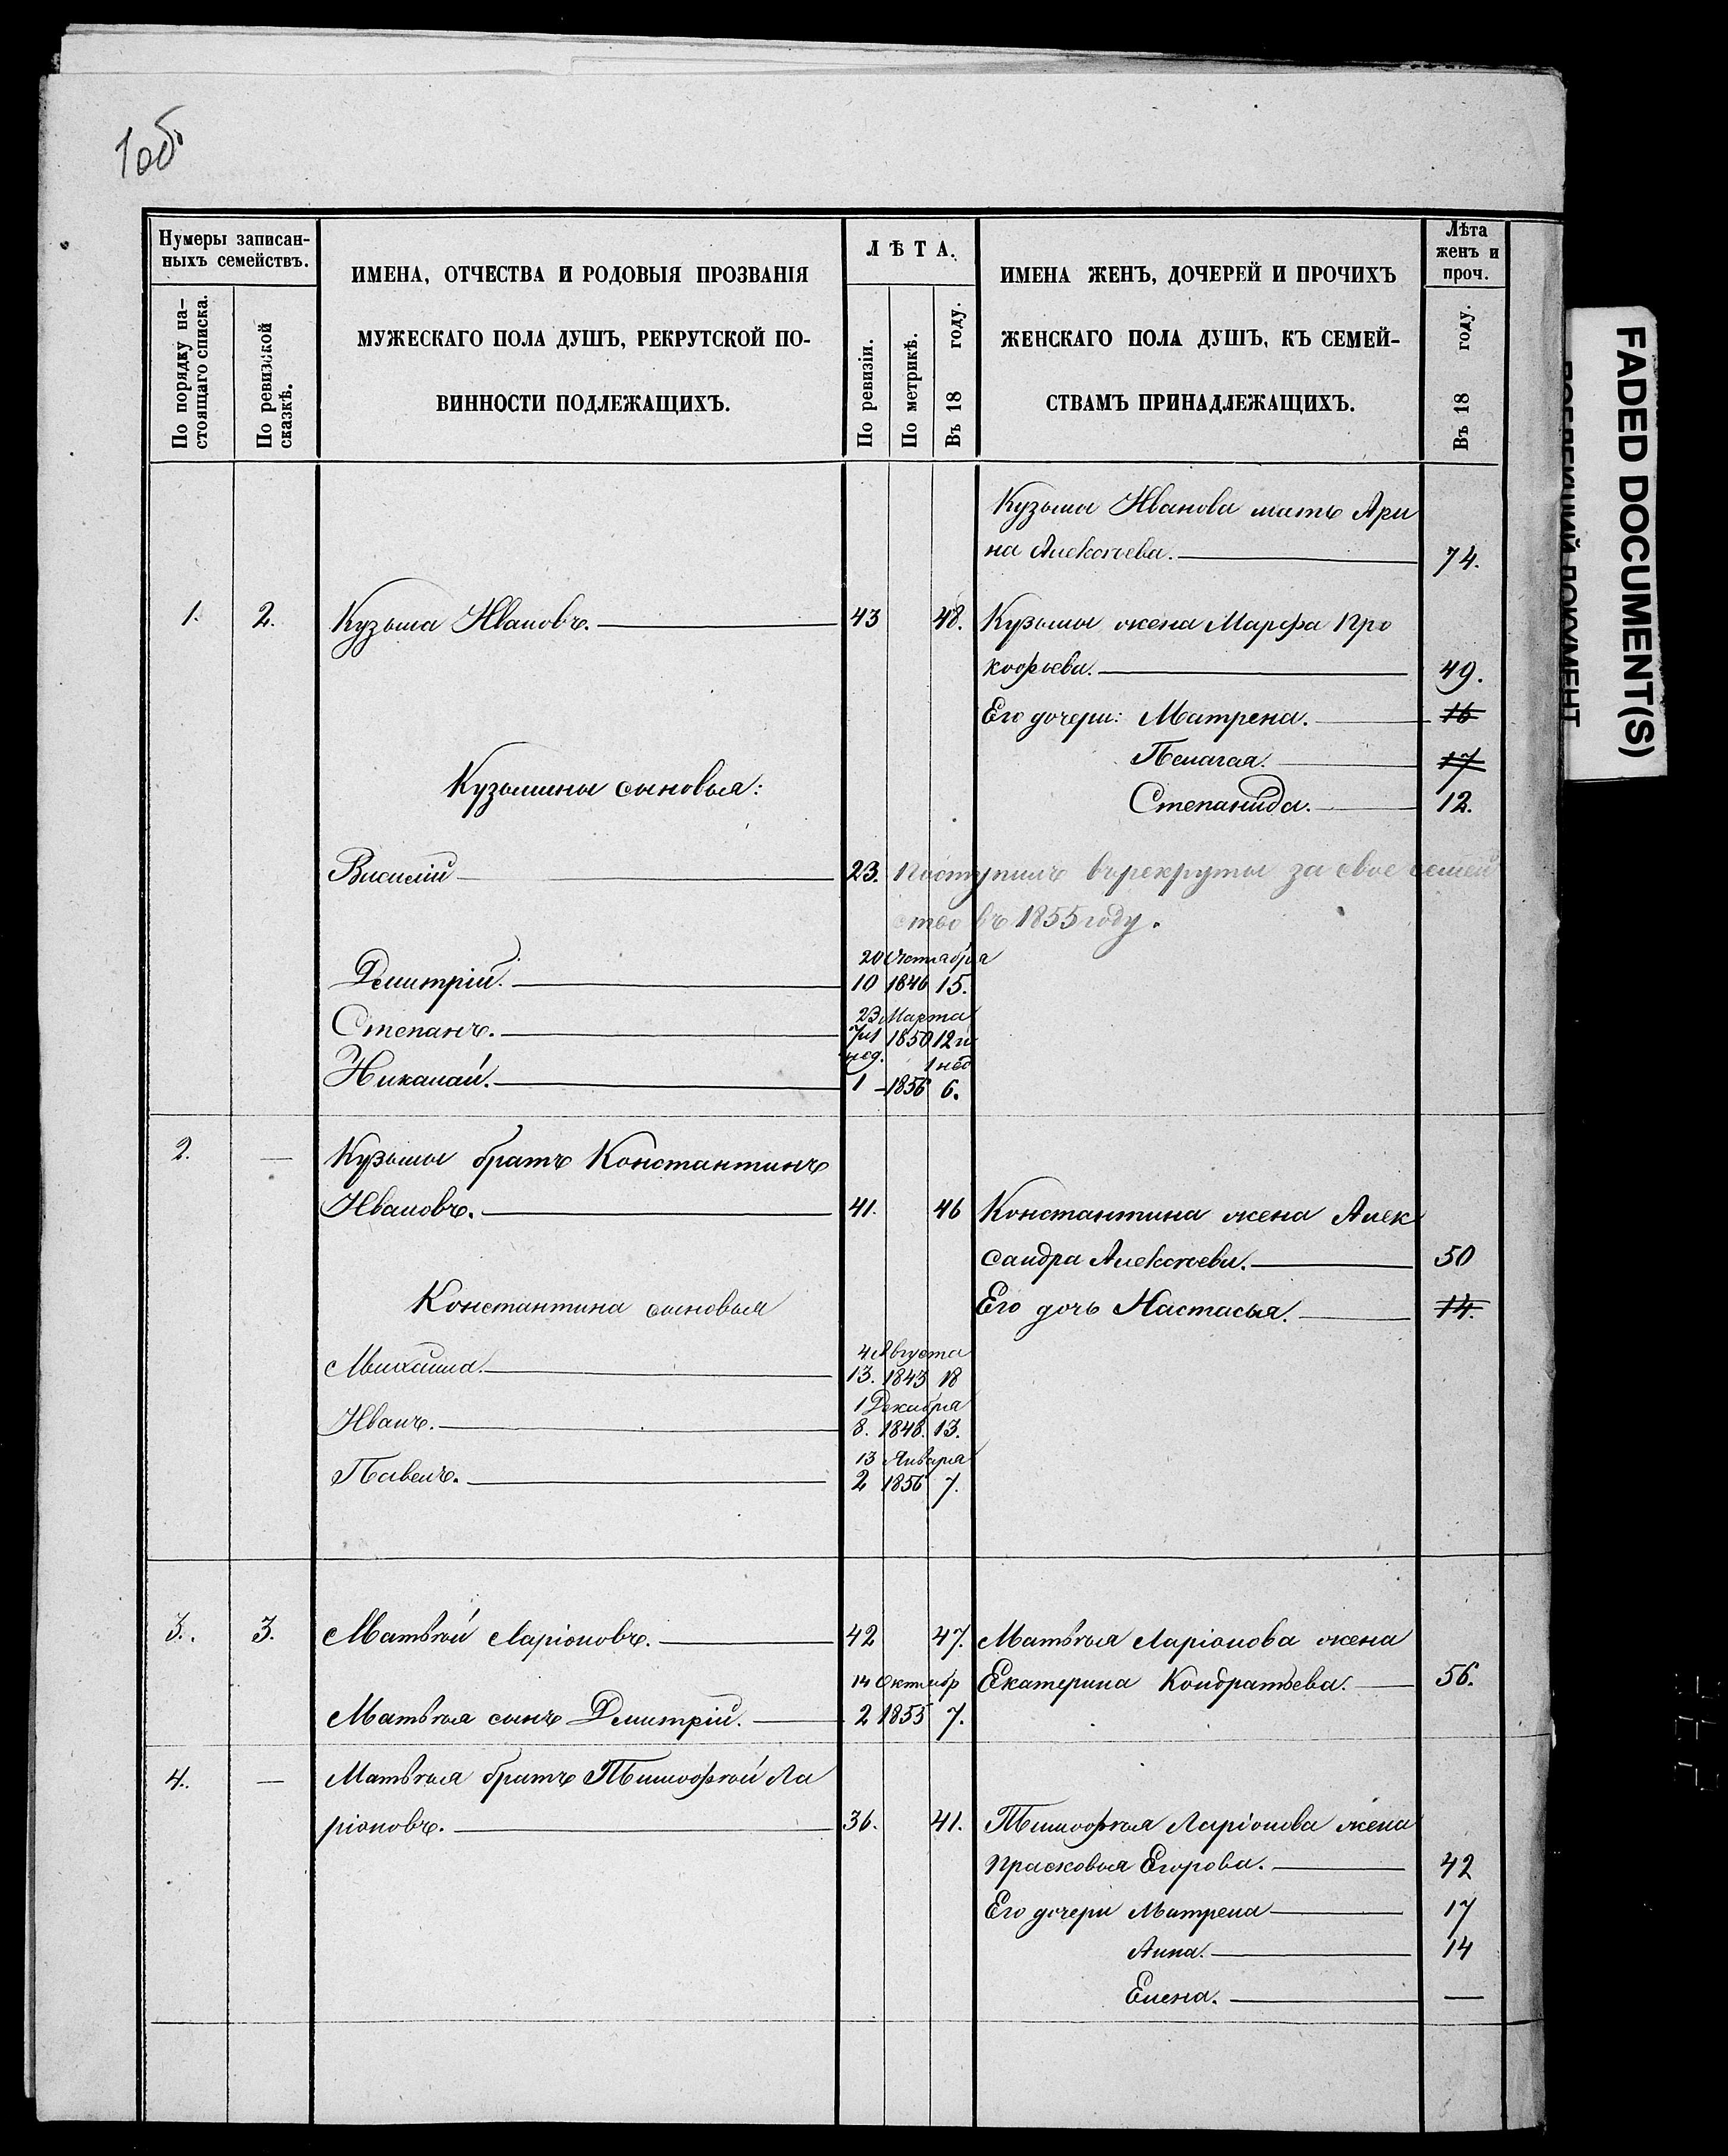 1об.
Нумеры записан-
ныхъ семействъ.
По порядку на-
стоящаго списка.
По ревизской
сказкѣ.
ИМЕНА, ОТЧЕСТВА И РОДОВЫЯ ПРОЗВАНІЯ
МУЖЕСКАГО ПОЛА ДУШЪ, РЕКРУТСКОЙ ПО-
ВИННОСТИ ПОДЛЕЖАЩИХЪ.
ЛѢТА.
По ревизіи.
По метрикѣ.
Въ 18 году.
ИМЕНА ЖЕНЪ, ДОЧЕРЕЙ И ПРОЧИХЪ
ЖЕНСКАГО ПОЛА ДУШЪ, КЪ СЕМЕЙ-
СТВАМЪ ПРИНАДЛЕЖАЩИХЪ.
Лѣта
женъ и
проч.
Въ 18 году.
FADED DOCUMENT(S)
ДОКУМЕНТ
Кузьмы Иванова мать Ари
на Алексѣева. 74.
1. 2. Кузьма Ивановъ. 43 48. Кузьмы жена Марфа Про
кофьева. 49.
Его дочери: Матрена. 16
Пелагая. 17
Кузьмины сыновья:
Степанида. 12.
Василій 23. Поступилъ въ рекруты за свое семей
ство въ 1855 году.
20 Октября
Дмитрій. 10 1846 15.
23 Марта
Степанъ. 7 и 1 1850 12 и
нед. 1 нед
Николай. 1 - 1856 6.
2. — Кузьмы братъ Константинъ
Ивановъ. 41. 46 Константина жена Алек
сандра Алексѣева. 50
Константина сыновья Его дочь Настасья. 14.
4 Августа
Михайла. 13. 1843 18
1 Декабря
Иванъ. 8. 1848. 13.
13 Января
Павелъ. 2 1856 7.
3. 3. Матвѣй Ларіоновъ. 42 47. Матвѣя Ларіонова жена
14 Октябр Екатерина Кондратьева. 56.
Матвѣя сынъ Дмитрій. 2 1855 7.
4. — Матвѣя братъ Тимофѣй Ла
ріоновъ. 36. 41. Тимофѣя Ларіонова жена
Прасковья Егорова. 42
Его дочери Матрена 17
Анна. 14
Елена. —